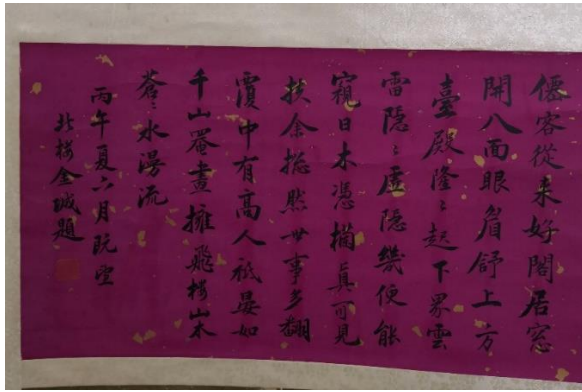 僊客從来好閣居窓
開八面眼眉舒上方
臺殿隆〻起下界雲
雷隠〻虛隠幾便能
窺日木憑橋真可見
扶余捴然世事多翻
覆中有高人祗晏如
千山罨畫擁飛樓山木
蒼〻水漫流
丙午夏六月既望
北樓金城題